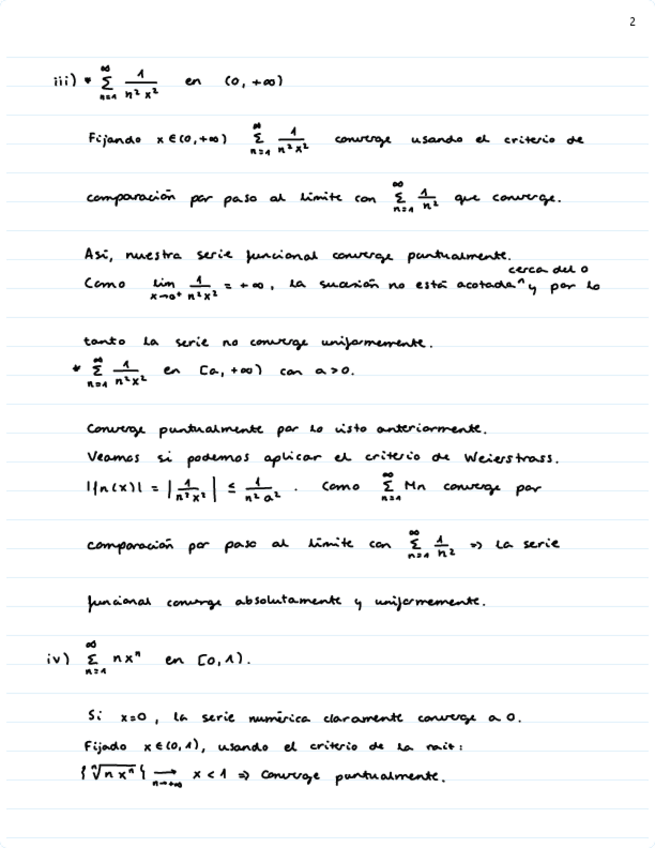 2
iii) * ∑_{n=1}^{∞} 1/(n²x²) en (0, +∞)
Fijando x ∈ (0, +∞) ∑_{n=1}^{∞} 1/(n²x²) converge usando el criterio de
comparación por paso al límite con ∑_{n=1}^{∞} 1/n² que converge.
Así, nuestra serie funcional converge puntualmente.
cerca del 0
Como lim_{x→0⁺} 1/(n²x²) = +∞, la sucesión no está acotada ^ y por lo
tanto la serie no converge uniformemente.
* ∑_{n=1}^{∞} 1/(n²x²) en [a, +∞) con a > 0.
Converge puntualmente por lo visto anteriormente.
Veamos si podemos aplicar el criterio de Weierstrass.
|fn(x)| = |1/(n²x²)| ≤ 1/(n²a²). Como ∑_{n=1}^{∞} Mn converge por
comparación por paso al límite con ∑_{n=1}^{∞} 1/n² ⇒ la serie
funcional converge absolutamente y uniformemente.
iv) ∑_{n=1}^{∞} nxⁿ en [0,1).
Si x=0, la serie numérica claramente converge a 0.
Fijado x ∈ (0,1), usando el criterio de la raíz:
{ⁿ√(nxⁿ)} →_{n→+∞} x < 1 ⇒ Converge puntualmente.